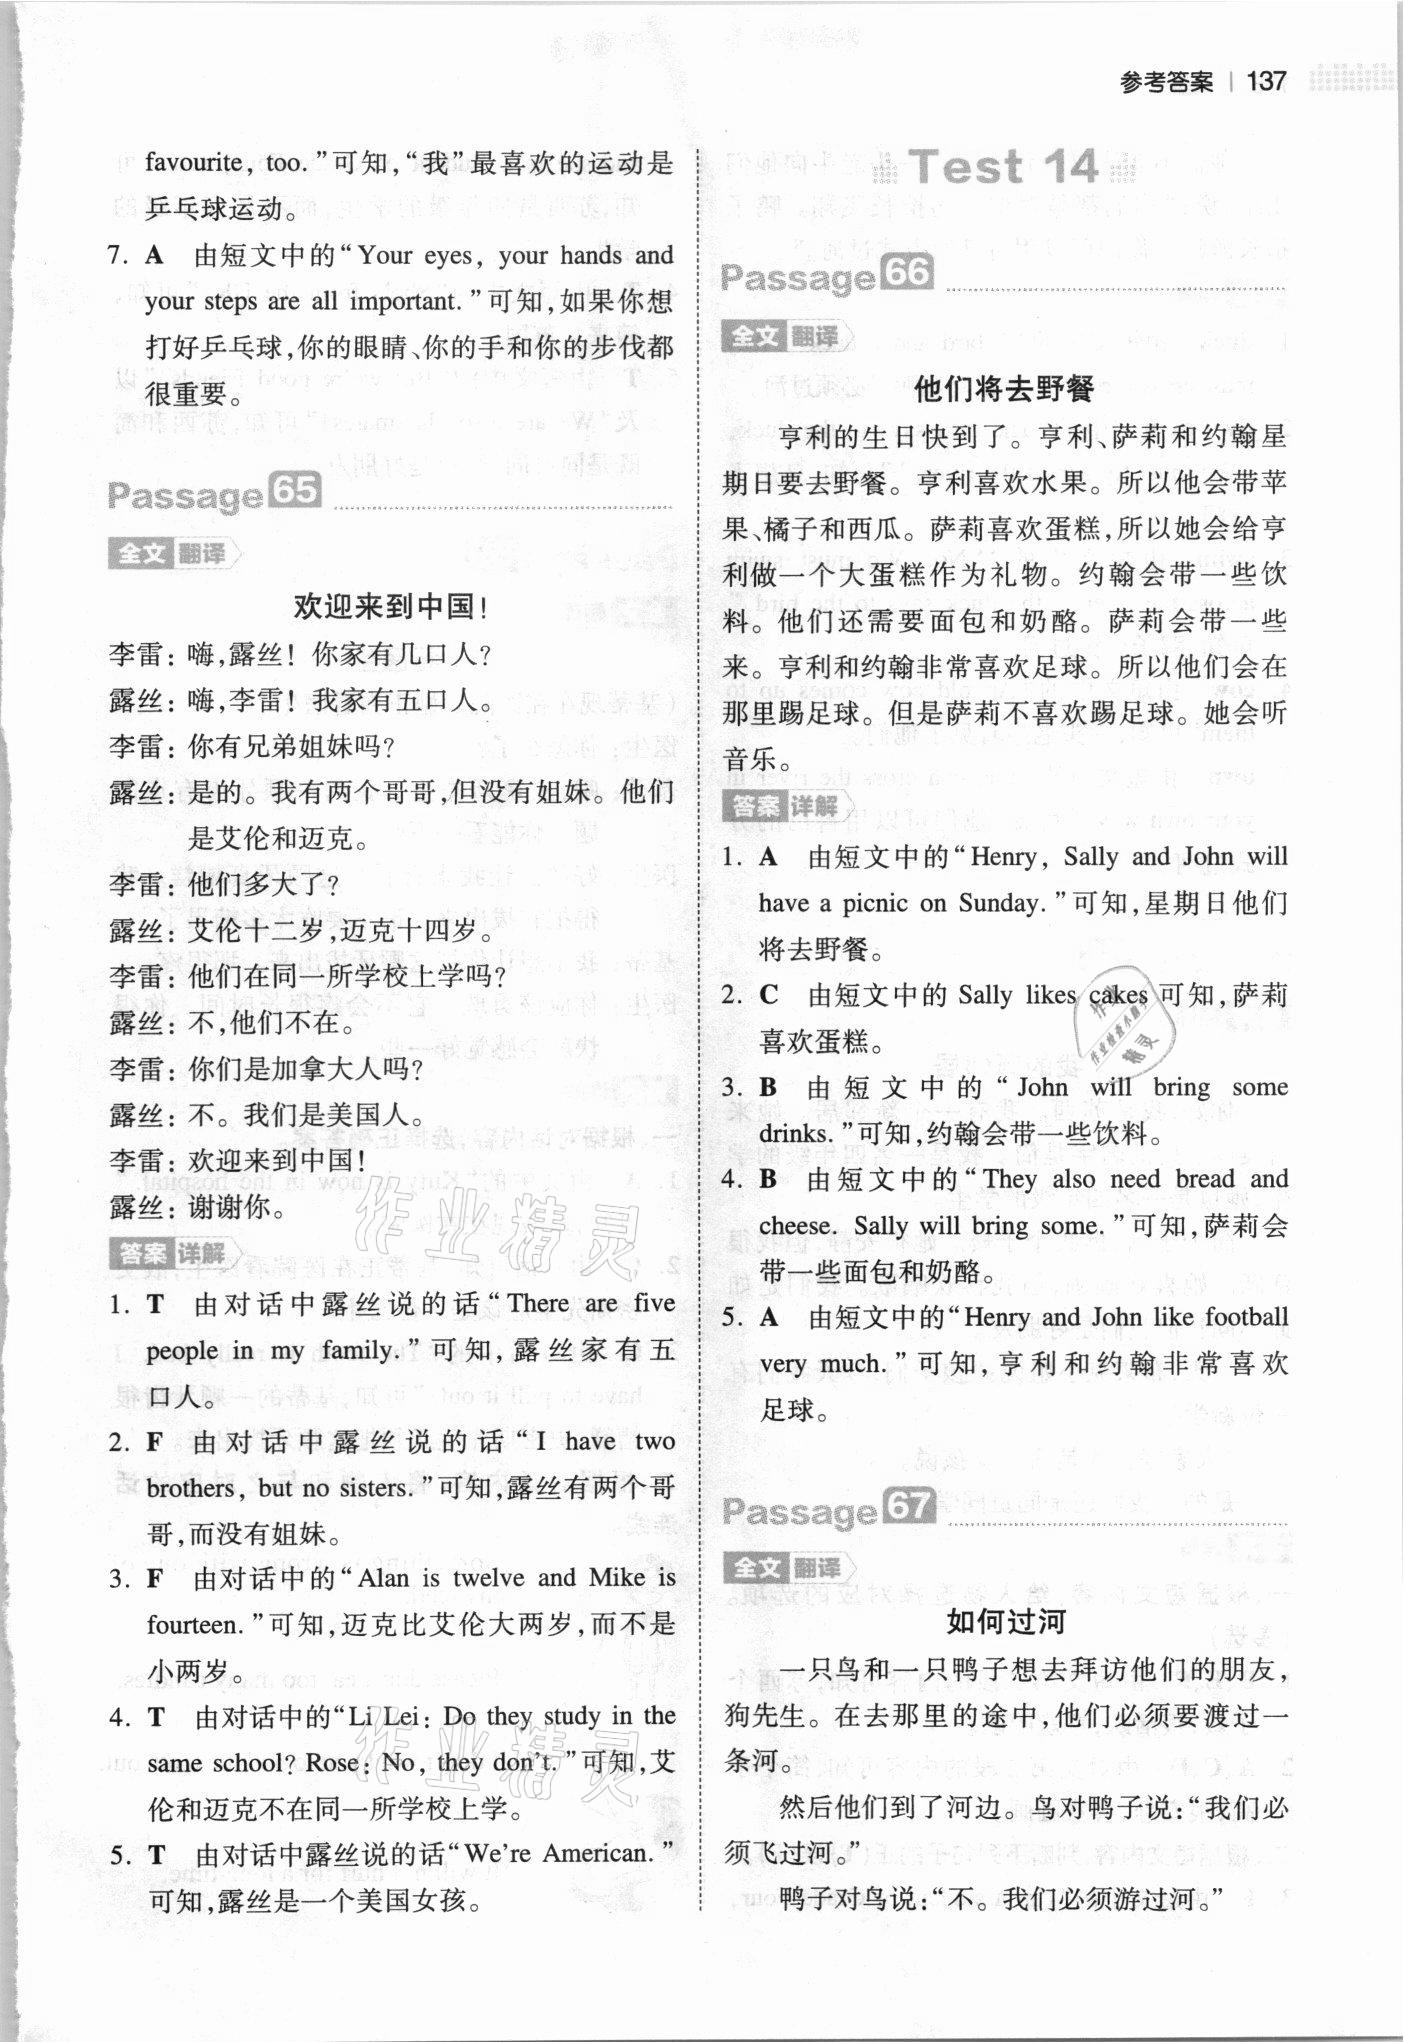 参考答案 | 137
favourite, too.”可知,“我”最喜欢的运动是
乒乓球运动。
7. A 由短文中的“Your eyes, your hands and
your steps are all important.”可知,如果你想
打好乒乓球,你的眼睛、你的手和你的步伐都
很重要。
Passage 65
全文 翻译
欢迎来到中国!
李雷: 嗨,露丝! 你家有几口人?
露丝: 嗨,李雷! 我家有五口人。
李雷: 你有兄弟姐妹吗?
露丝: 是的。我有两个哥哥,但没有姐妹。他们
是艾伦和迈克。
李雷: 他们多大了?
露丝: 艾伦十二岁,迈克十四岁。
李雷: 他们在同一所学校上学吗?
露丝: 不,他们不在。
李雷: 你们是加拿大人吗?
露丝: 不。我们是美国人。
李雷: 欢迎来到中国!
露丝: 谢谢你。
答案 详解
1. T 由对话中露丝说的话“There are five
people in my family.”可知,露丝家有五
口人。
2. F 由对话中露丝说的话“I have two
brothers, but no sisters.”可知,露丝有两个哥
哥,而没有姐妹。
3. F 由对话中的“Alan is twelve and Mike is
fourteen.”可知,迈克比艾伦大两岁,而不是
小两岁。
4. T 由对话中的“Li Lei: Do they study in the
same school? Rose: No, they don't.”可知,艾
伦和迈克不在同一所学校上学。
5. T 由对话中露丝说的话“We're American.”
可知,露丝是一个美国女孩。
Test 14
Passage 66
全文 翻译
他们将去野餐
亨利的生日快到了。亨利、萨莉和约翰星
期日要去野餐。亨利喜欢水果。所以他会带苹
果、橘子和西瓜。萨莉喜欢蛋糕,所以她会给亨
利做一个大蛋糕作为礼物。约翰会带一些饮
料。他们还需要面包和奶酪。萨莉会带一些
来。亨利和约翰非常喜欢足球。所以他们会在
那里踢足球。但是萨莉不喜欢踢足球。她会听
音乐。
答案 详解
1. A 由短文中的“Henry, Sally and John will
have a picnic on Sunday.”可知,星期日他们
将去野餐。
2. C 由短文中的 Sally likes cakes 可知,萨莉
喜欢蛋糕。
3. B 由短文中的“John will bring some
drinks.”可知,约翰会带一些饮料。
4. B 由短文中的“They also need bread and
cheese. Sally will bring some.”可知,萨莉会
带一些面包和奶酪。
5. A 由短文中的“Henry and John like football
very much.”可知,亨利和约翰非常喜欢
足球。
Passage 67
全文 翻译
如何过河
一只鸟和一只鸭子想去拜访他们的朋友,
狗先生。在去那里的途中,他们必须要渡过一
条河。
然后他们到了河边。鸟对鸭子说:“我们必
须飞过河。”
鸭子对鸟说:“不。我们必须游过河。”
作业精灵
作业精灵
作业
精灵